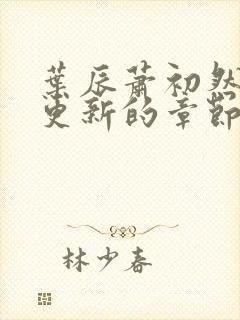 葉辰蕭初然
更新的章節
林少春